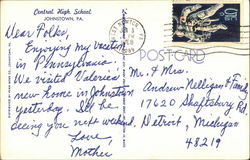 Central High School
JOHNSTOWN, PA.
POST CARD
Dear Folks,
Enjoying my vacation
in Pennsylvania.
We visited Valerie's
new home in Johnstown
yesterday. I'll be
seeing you next weekend.
Love,
Mother
Mr. & Mrs.
Andrew Nelligan & Family
17620 Shaftsbury Rd.
Detroit, Michigan
48219